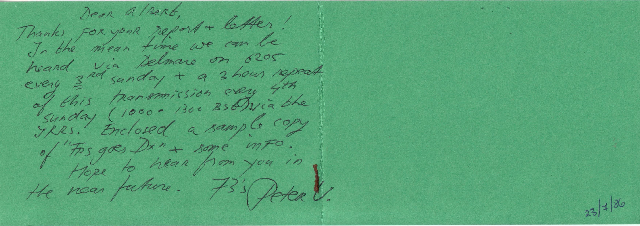 Dear Albert,
Thanks for your report + letter!
In the mean time we can be
heard via Delmare on 6205
every 3rd sunday + a 2 hours repeat
of this transmission every 4th
sunday (1000 - 1300 via the
IRRS. Enclosed a sample copy
of "FRS goes DX" + some info.
Hope to hear from you in
the near future. 73's Peter V.
23/1/86